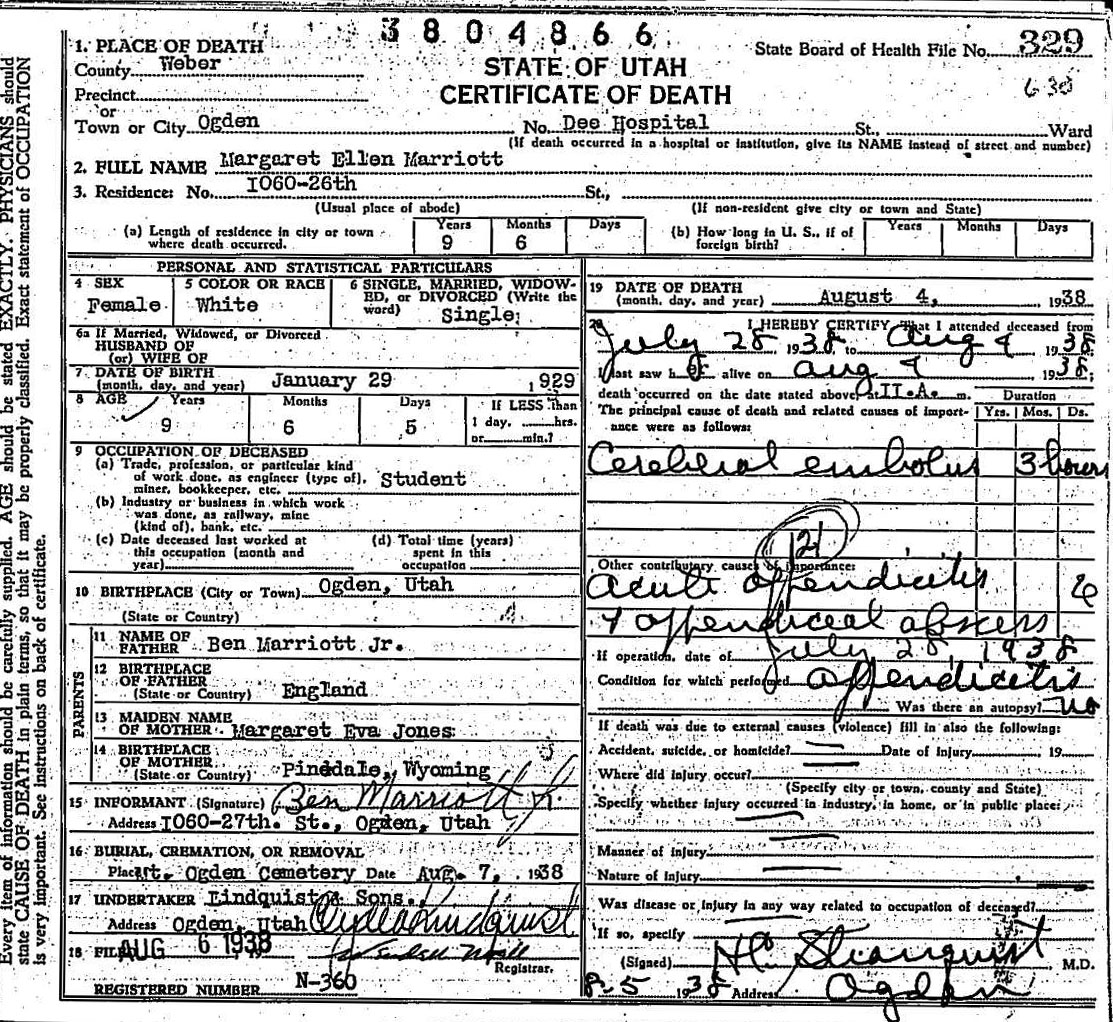 3804866
State Board of Health File No. 329
630
1. PLACE OF DEATH
County Weber
STATE OF UTAH
CERTIFICATE OF DEATH
Precinct
or
Town or City Ogden No. Dee Hospital St., Ward
(If death occurred in a hospital or institution, give its NAME instead of street and number)
2. FULL NAME Margaret Ellen Marriott
3. Residence: No. I060-26th St.,
(Usual place of abode) (If non-resident give city or town and State)
(a) Length of residence in city or town where death occurred. Years 9 Months 6 Days
(b) How long in U. S., if of foreign birth? Years Months Days
PERSONAL AND STATISTICAL PARTICULARS
4 SEX Female
5 COLOR OR RACE White
6 SINGLE, MARRIED, WIDOWED, or DIVORCED (Write the word) Single
6a If Married, Widowed, or Divorced
HUSBAND OF
(or) WIFE OF
7 DATE OF BIRTH
(month, day, and year) January 29, 1929
8 AGE Years 9 Months 6 Days 5
If LESS than
1 day, hrs.
or min.?
9 OCCUPATION OF DECEASED
(a) Trade, profession, or particular kind
of work done, as engineer (type of),
miner, bookkeeper, etc. Student
(b) Industry or business in which work
was done, as railway, mine
(kind of), bank, etc.
(c) Date deceased last worked at
this occupation (month and
year)
(d) Total time (years)
spent in this
occupation
10 BIRTHPLACE (City or Town) Ogden, Utah
(State or Country)
PARENTS
11 NAME OF
FATHER Ben Marriott Jr.
12 BIRTHPLACE
OF FATHER
(State or Country) England
13 MAIDEN NAME
OF MOTHER Margaret Eva Jones
14 BIRTHPLACE
OF MOTHER
(State or Country) Pinedale, Wyoming
15 INFORMANT (Signature) Ben Marriott Jr.
Address I060-27th. St., Ogden, Utah
16 BURIAL, CREMATION, OR REMOVAL
Place Mt. Ogden Cemetery Date Aug. 7, 1938
17 UNDERTAKER Lindquist & Sons.
Address Ogden, Utah Clyde Lindquist
18 FILED AUG 6 1938
Registrar.
REGISTERED NUMBER N-360
19 DATE OF DEATH
(month, day, and year) August 4, 1938
20 I HEREBY CERTIFY That I attended deceased from
July 28, 1938 to Aug 4 1938
I last saw her alive on Aug 4 1938;
death occurred on the date stated above, at II.A. m.
The principal cause of death and related causes of importance were as follows:
Duration
Yrs. Mos. Ds.
Cerebral embolus 3 hours
121
Other contributory causes of importance:
Acute appendicitis
& appendiceal abscess
If operation, date of July 28, 1938
Condition for which performed appendicitis
Was there an autopsy? no
If death was due to external causes (violence) fill in also the following:
Accident, suicide, or homicide? Date of Injury 19
Where did injury occur?
(Specify city or town, county and State)
Specify whether injury occurred in industry, in home, or in public place:
Manner of injury
Nature of Injury
Was disease or injury in any way related to occupation of deceased?
If so, specify
(Signed) H C Stranquist M.D.
8-5 1938 Address Ogden
Every item of information should be carefully supplied. AGE should be stated EXACTLY. PHYSICIANS should
state CAUSE OF DEATH in plain terms, so that it may be properly classified. Exact statement of OCCUPATION
is very important. See instructions on back of certificate.